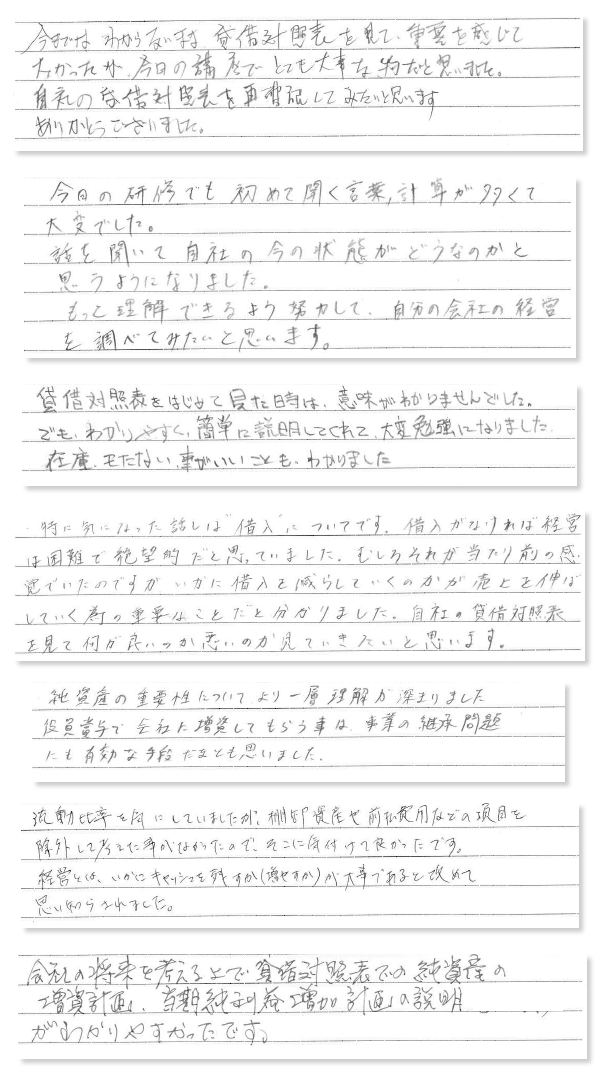 今までは わからないまま 貸借対照表を見て、重要を感じて
なかったが、今日の講座でとても大事な物だと思いました。
自社の貸借対照表を再確認してみたいと思います
ありがとうございました。
今日の研修でも初めて聞く言葉,計算が多くて
大変でした。
話を聞いて自社の今の状態がどうなのかと
思うようになりました。
もっと理解できるよう努力して、自分の会社の経営
を調べてみたいと思います。
貸借対照表をはじめて見た時は、意味がわかりませんでした。
でも、わかりやすく、簡単に説明してくれて、大変勉強になりました。
在庫、モたない、事がいいことも、わかりました
特に気になった話しは"借入"についてです。借入がなければ経営
は困難で絶望的だと思っていました。むしろそれが当たり前の感
覚でいたのですが いかに借入を減らしていくのかが売上を伸ば
していく為の重要なことだと分かりました。自社の貸借対照表
を見て何が良いのか悪いのか見ていきたいと思います。
純資産の重要性についてより一層理解が深まりました
役員賞与で会社に増資してもらう事は、事業の継承問題
にも有効な手段だなとも思いました。
流動比率を気にしていましたが、棚卸資産や前払費用などの項目を
除外して考えた事がなかったので、そこに気付けて良かったです。
経営とは、いかにキャッシュを残すか(増やすか)が大事であると改めて
思い知らされました。
会社の将来を考える上で貸借対照表での純資産の
増資計画、当期純利益増加計画の説明
がわかりやすかったです。